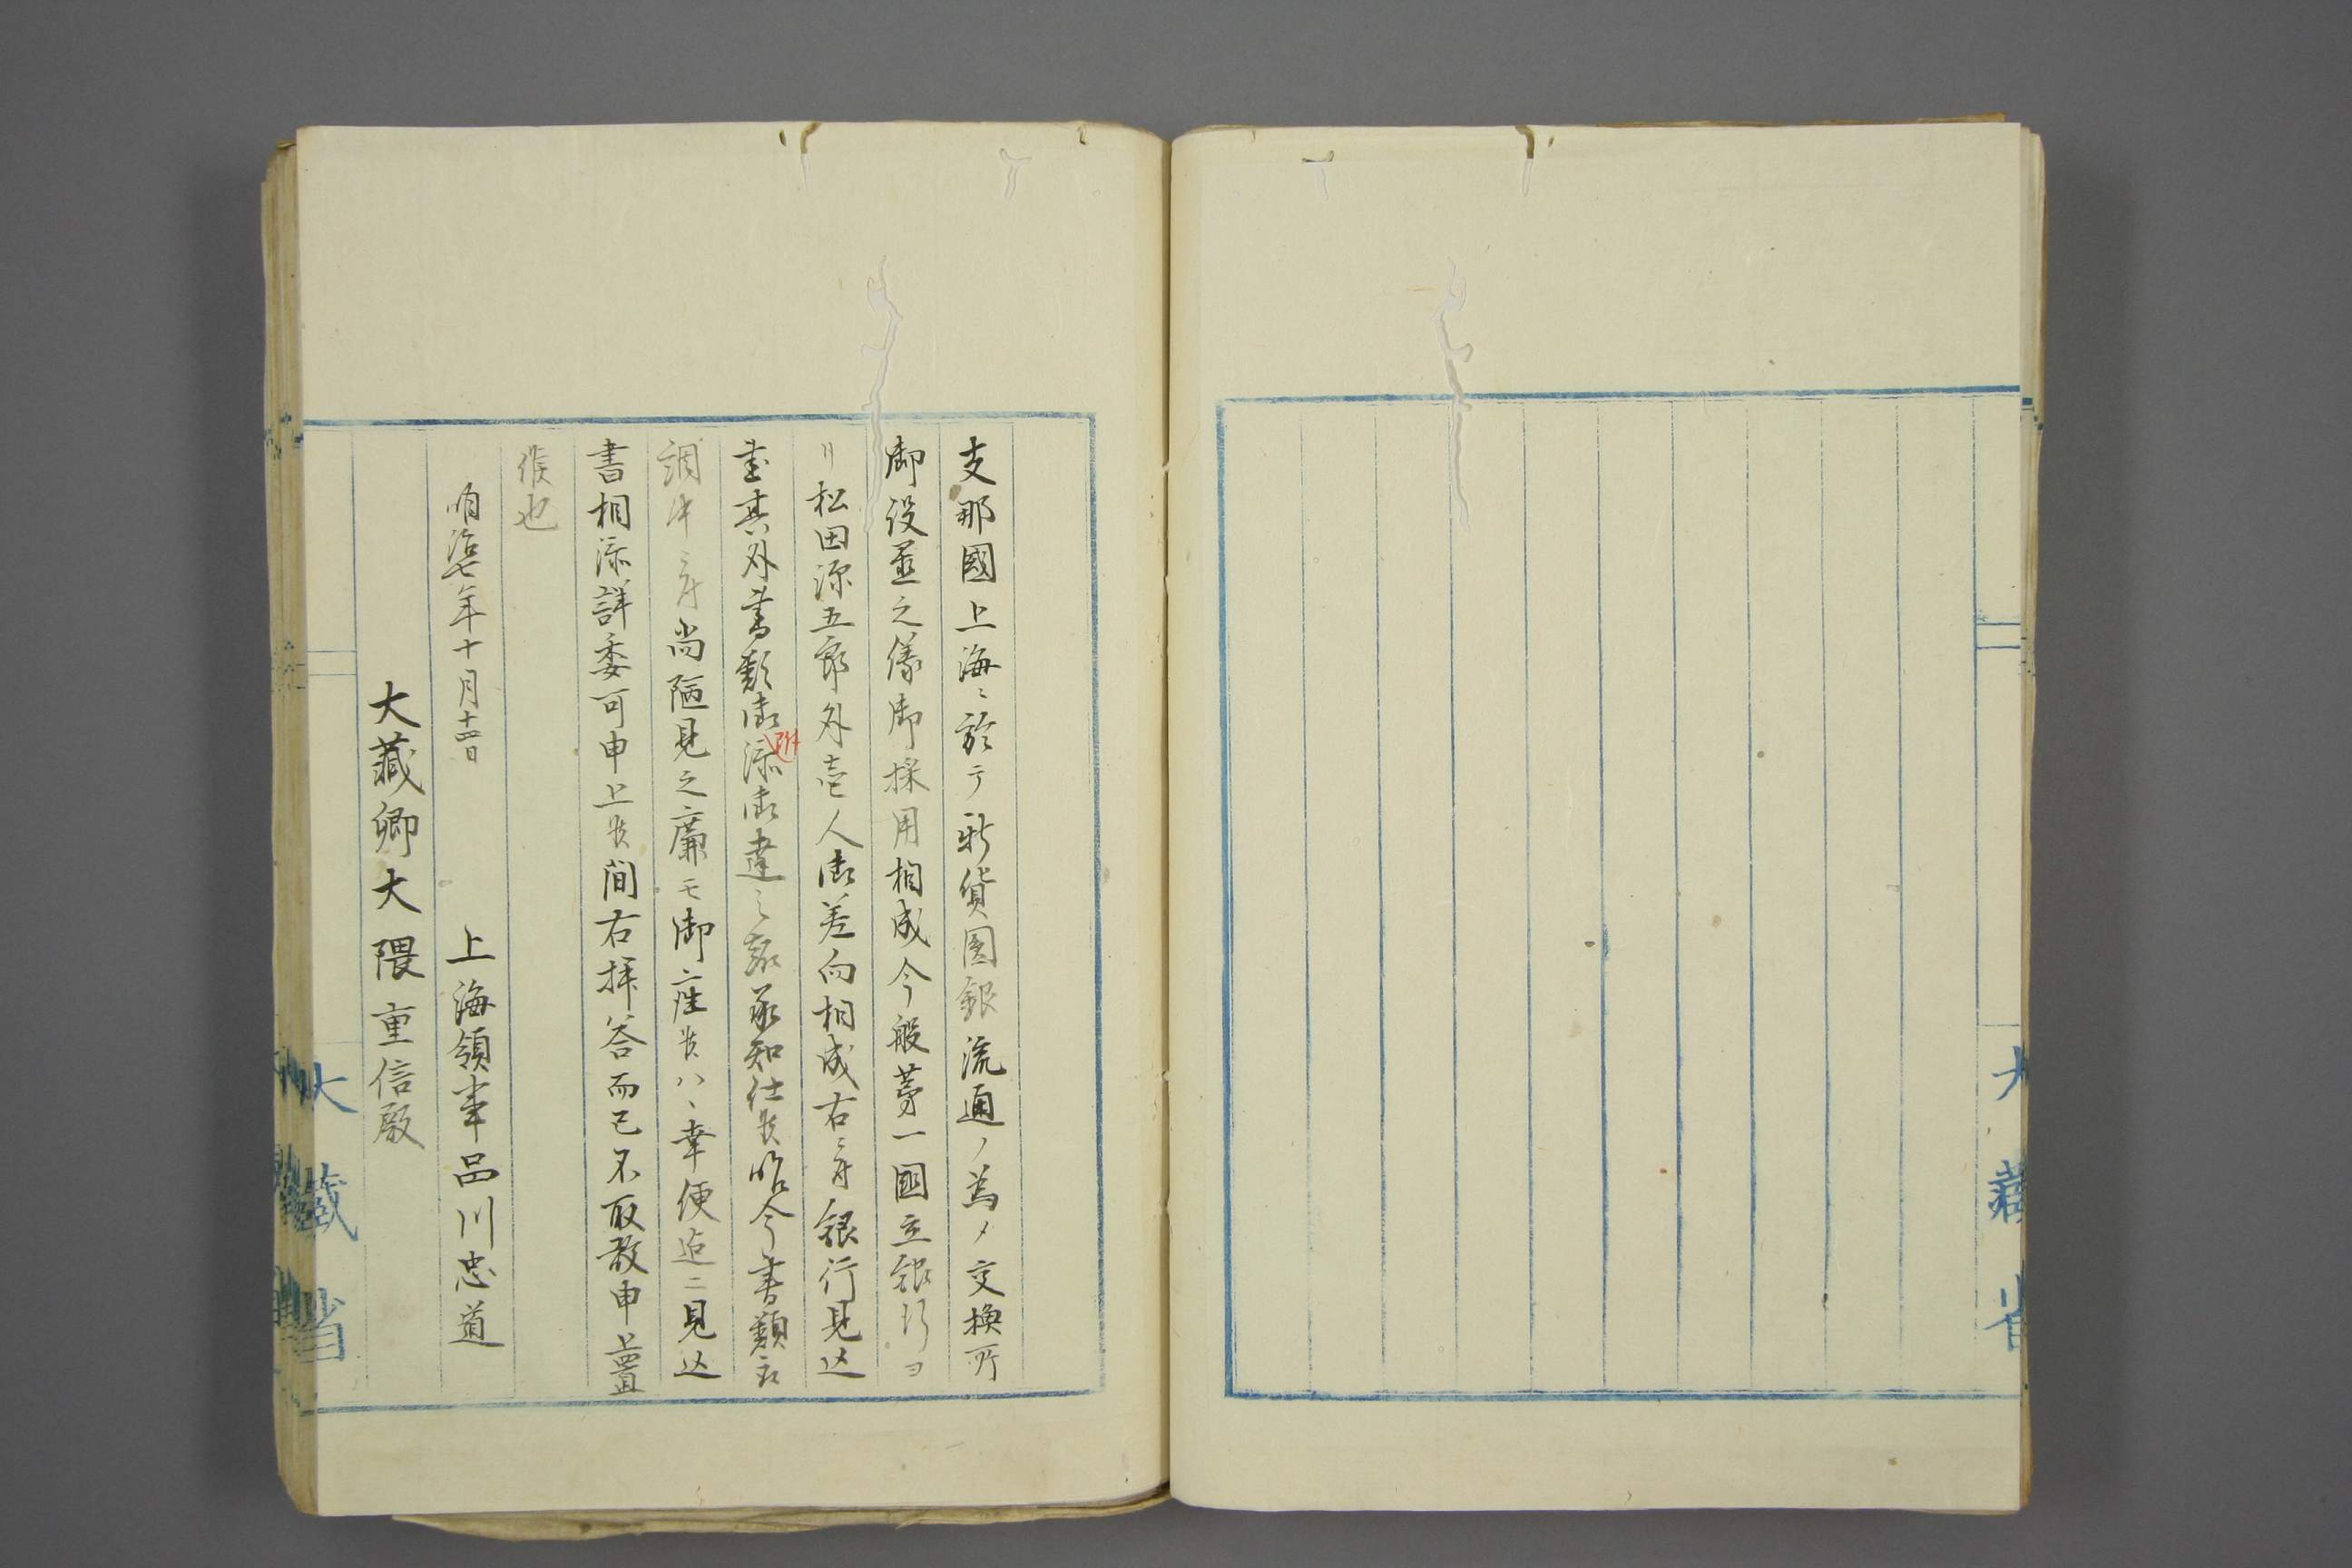 支那國上海ニ於テ新貨圓銀流通ノ為メ交換所
御設置之儀御採用相成今般第一國立銀行ヨ
リ松田源五郎外壱人御差向相成右ニ付銀行見込
書其外書類御添御達之趣承知仕候昨今書類取
附
調中ニ付尚陋見之廉モ御座候ハヽ幸便迠ニ見込
書相添詳委可申上候間右拝答而已不取敢申上置
候也
明治七年十月十四日
上海領事品川忠道
大藏卿大隈重信殿
大藏省
大藏省